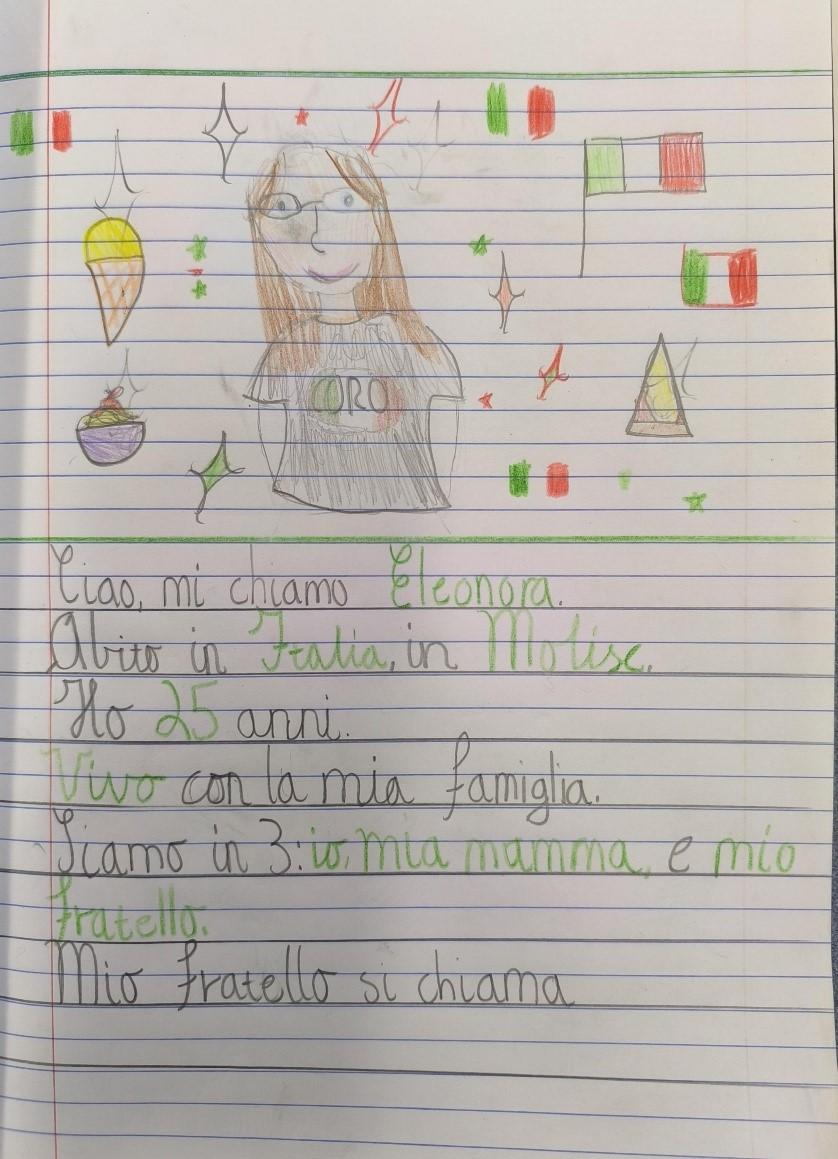 CORO
Ciao, mi chiamo Eleonora.
Abito in Italia, in Molise.
Ho 25 anni.
Vivo con la mia famiglia.
Siamo in 3: io, mia mamma, e mio
fratello.
Mio fratello si chiama